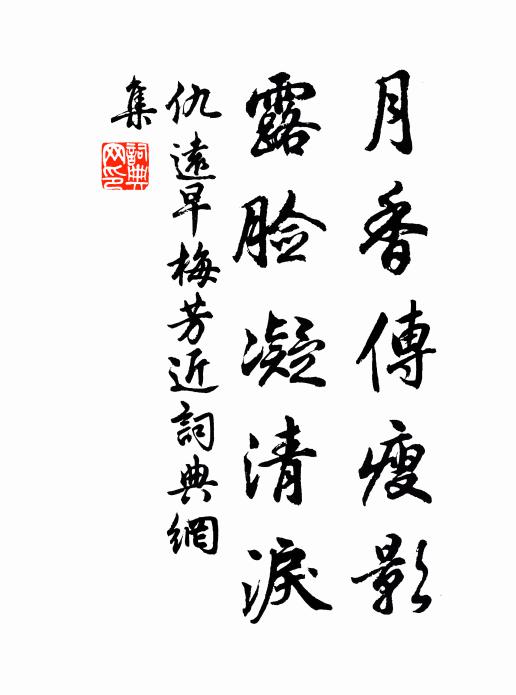 月香傳瘦影
露脸凝清淚
仇遠早梅芳近詞典網
集
詞典網印